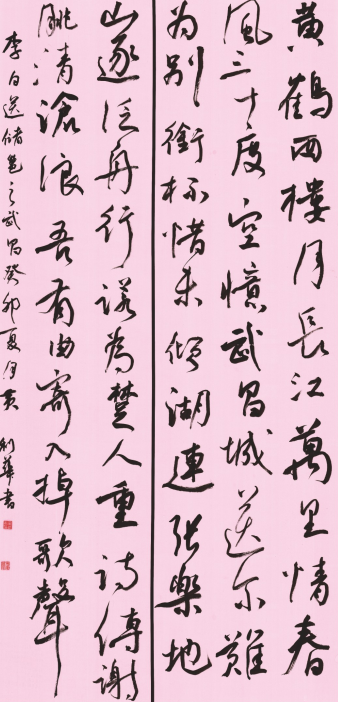 黃鶴西樓月長江萬里情春
風三十度空憶武昌城送尔難
为別銜杯惜未傾湖連張樂地
山逐泛舟行諾為楚人重詩傳謝
朓清滄浪吾有曲寄入掉歌聲
李白送儲邕之武昌癸卯夏月黄利華書